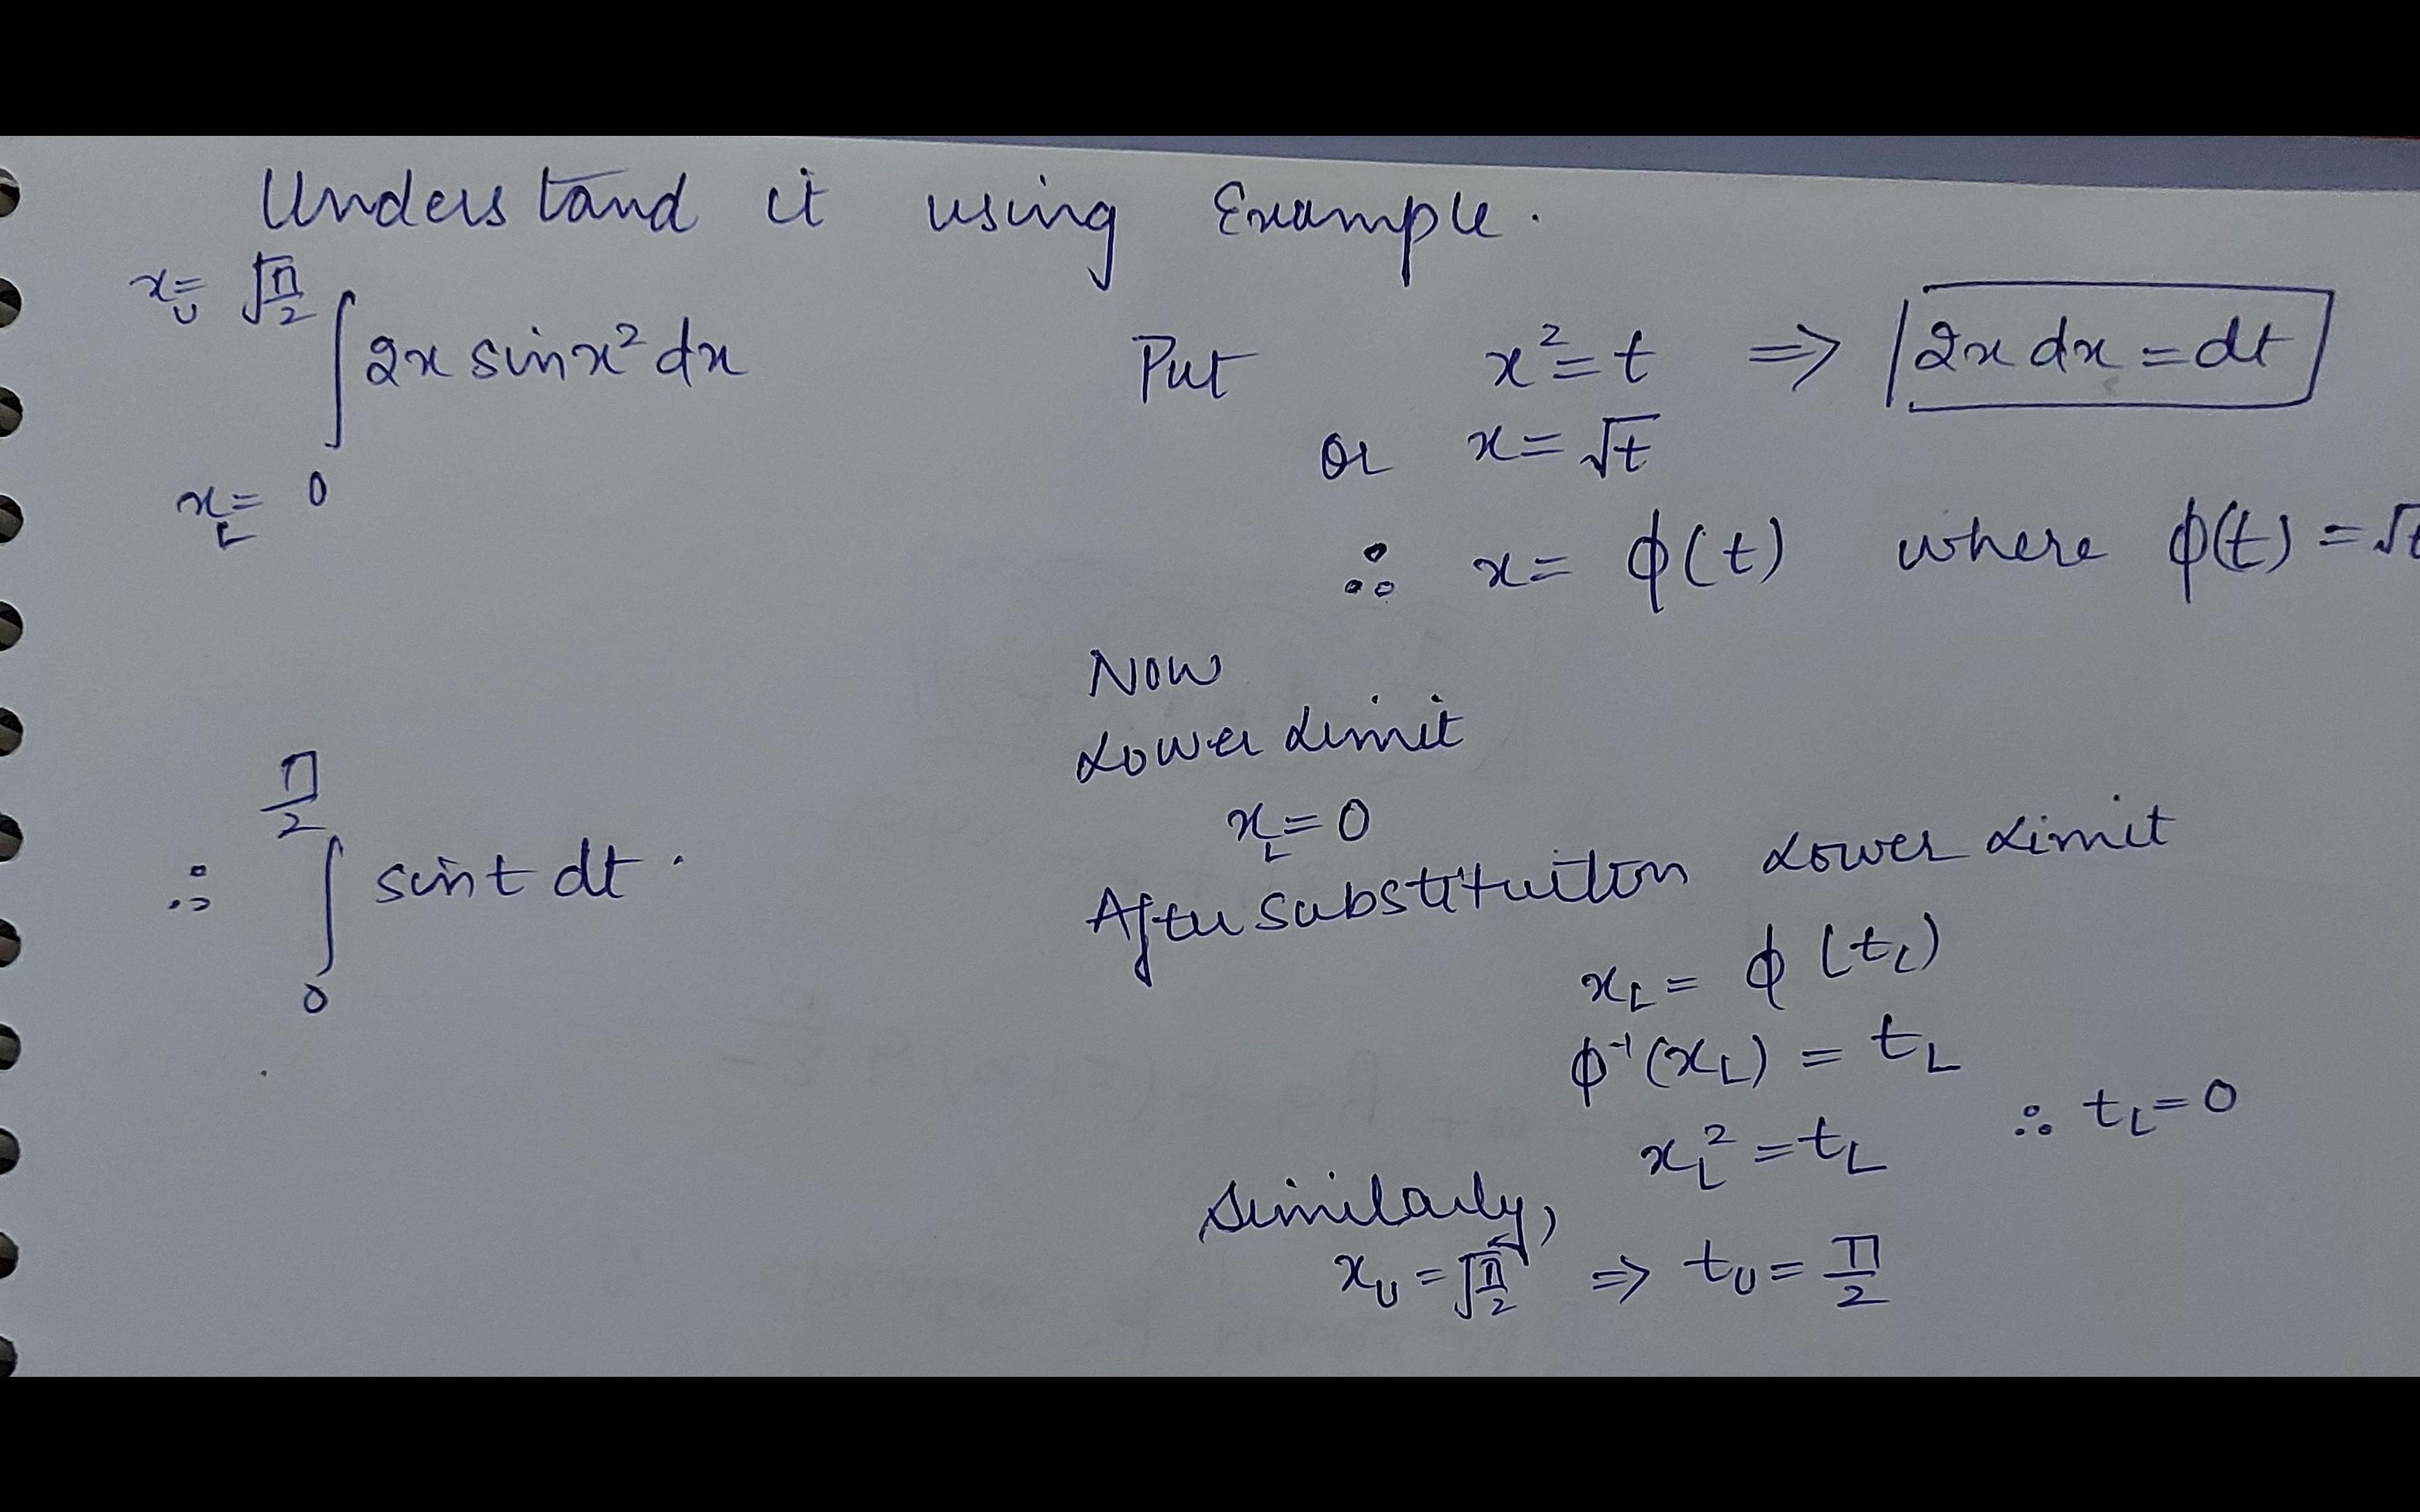 Understand it using Example.
x_U = √(π/2)
∫ 2x sin x² dx
x_L = 0
Put x² = t ⇒ 2x dx = dt
or x = √t
∴ x = ϕ(t) where ϕ(t) = √t
Now
Lower Limit
x_L = 0
After substituiton Lower Limit
x_L = ϕ(t_L)
ϕ⁻¹(x_L) = t_L
x_L² = t_L ∴ t_L = 0
Similarly,
x_U = √(π/2) ⇒ t_U = π/2
π/2
∴ ∫ sin t dt.
0